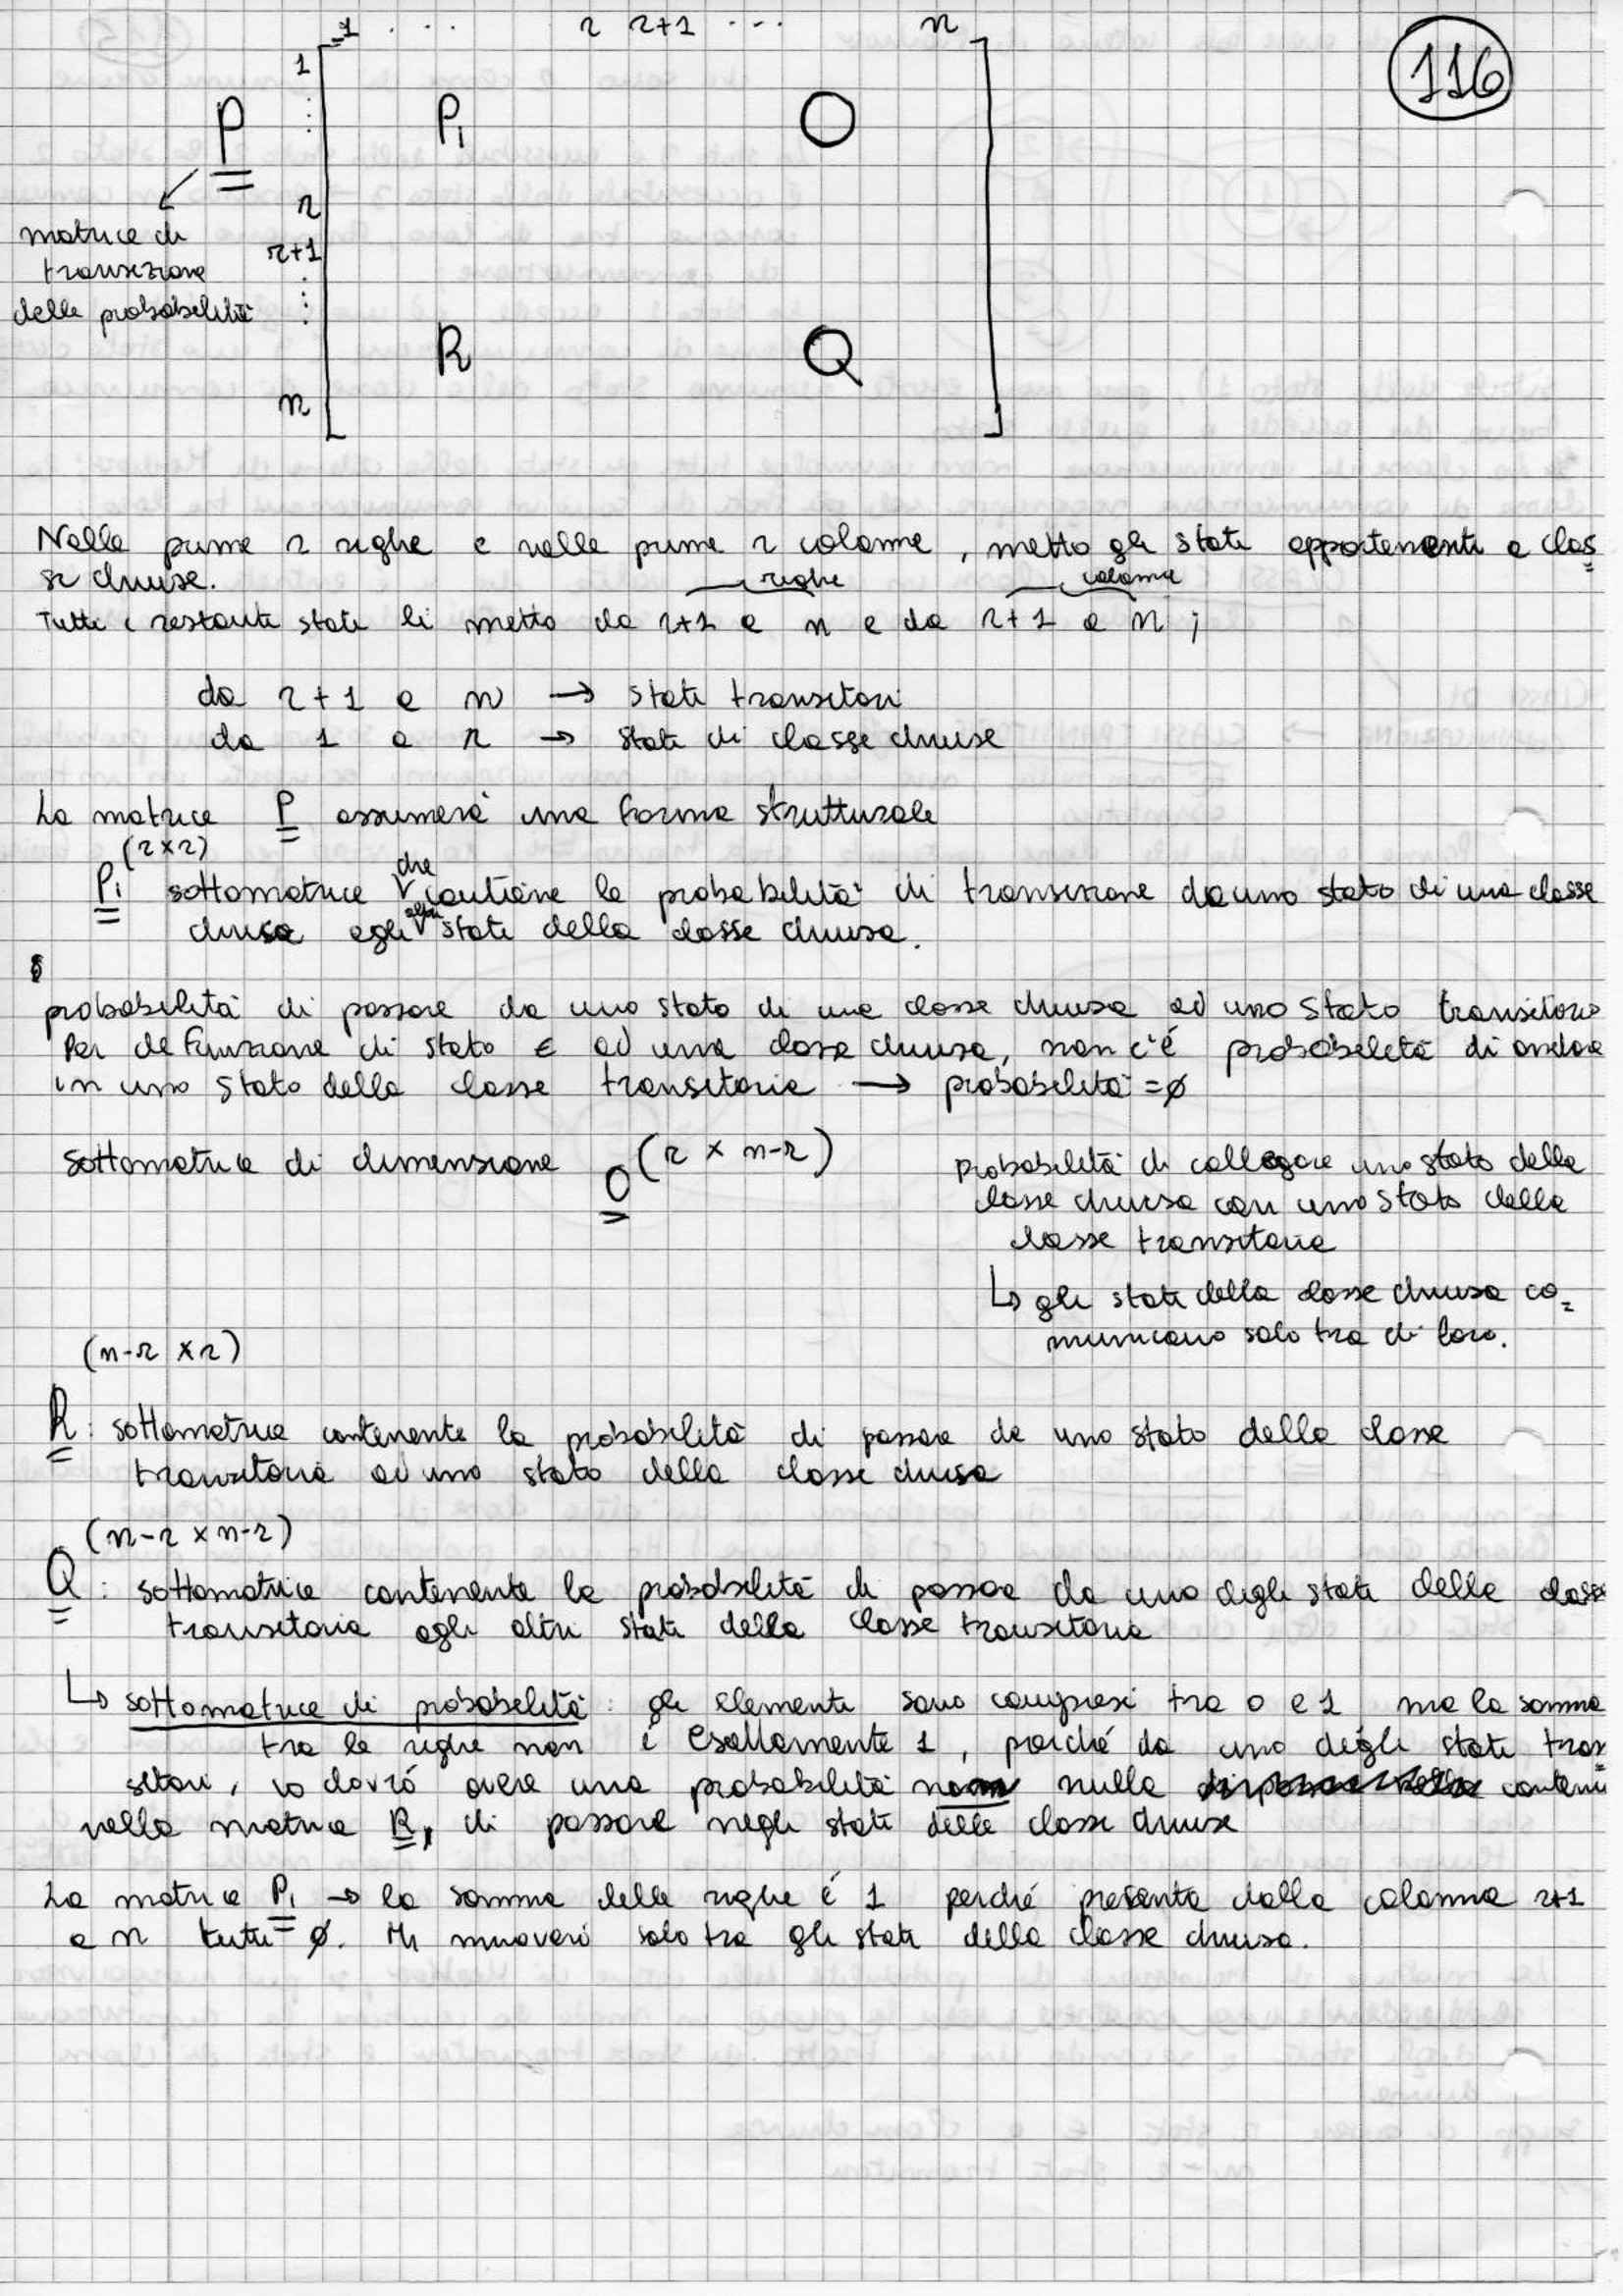 116
1 ... r r+1 ... n
1
⋮
r
r+1
⋮
n
P
P1 O
R Q
matrice di
transizione
delle probabilità
Nelle prime r righe e nelle prime r colonne, metto gli stati appartenenti a clas
si chiuse.
righe colonne
Tutti i restanti stati li metto da r+1 a n e da r+1 a n;
da r+1 a n → stati transitori
da 1 a r → stati di classe chiuse
La matrice P assumerà una forma strutturale
(r×r)
P1 sottomatrice che contiene le probabilità di transizione da uno stato di una classe
chiusa agli altri stati della classe chiusa.
probabilità di passare da uno stato di una classe chiusa ad uno stato transitorio
Per definizione di stato ∈ ad una classe chiusa, non c'è probabilità di andare
in uno stato della classe transitoria → probabilità = ø
sottomatrice di dimensione O (r × n-r)
probabilità di collegare uno stato della
classe chiusa con uno stato della
classe transitoria
↳ gli stati della classe chiusa co=
municano solo tra di loro.
(n-r × r)
R: sottomatrice contenente la probabilità di passare da uno stato della classe
transitoria ad uno stato della classe chiusa
(n-r × n-r)
Q: sottomatrice contenente le probabilità di passare da uno degli stati della classe
transitoria agli altri stati della classe transitoria
↳ sottomatrice di probabilità: gli elementi sono compresi tra 0 e 1 ma la somma
tra le righe non è esattamente 1, poiché da uno degli stati tran=
sitori, io dovrò avere una probabilità non nulla contenu
nella matrice R, di passare negli stati delle classi chiuse
La matrice P1 → la somma delle righe è 1 perché presenta dalla colonna r+1
a n tutti ø. Mi muoverò solo tra gli stati della classe chiusa.